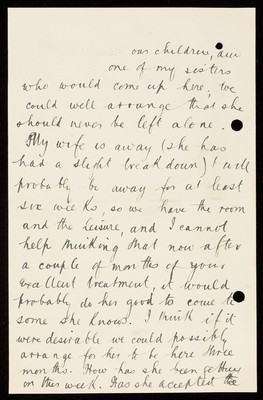 our children, and
one of my sisters
who would come up here, we
could well arrange that she
should never be left alone.
My wife is away (she has
had a slight breakdown) & will
probably be away for at least
six weeks, so we have the room
and the leisure, and I cannot
help thinking that now after
a couple of months of your
excellent treatment, it would
probably do her good to come to
some she knows. I think if it
were desirable we could possibly
arrange for her to be here three
months. How has she been getting
on this week. Has she accepted the